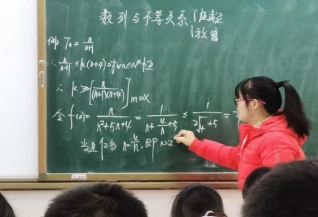 数列与不等关系 {1.恒成立
2.放缩
即 Tn = n/(n+1)
∴ n/(n+1) ≤ k(n+4)
∴ k ≥ [n/((n+1)(n+4))]max
令 f(n) = n/(n²+5n+4) = 1/(n+4/n+5) ≤ 1/(2√4+5) =
当且仅当 n=4/n, 即 n=2